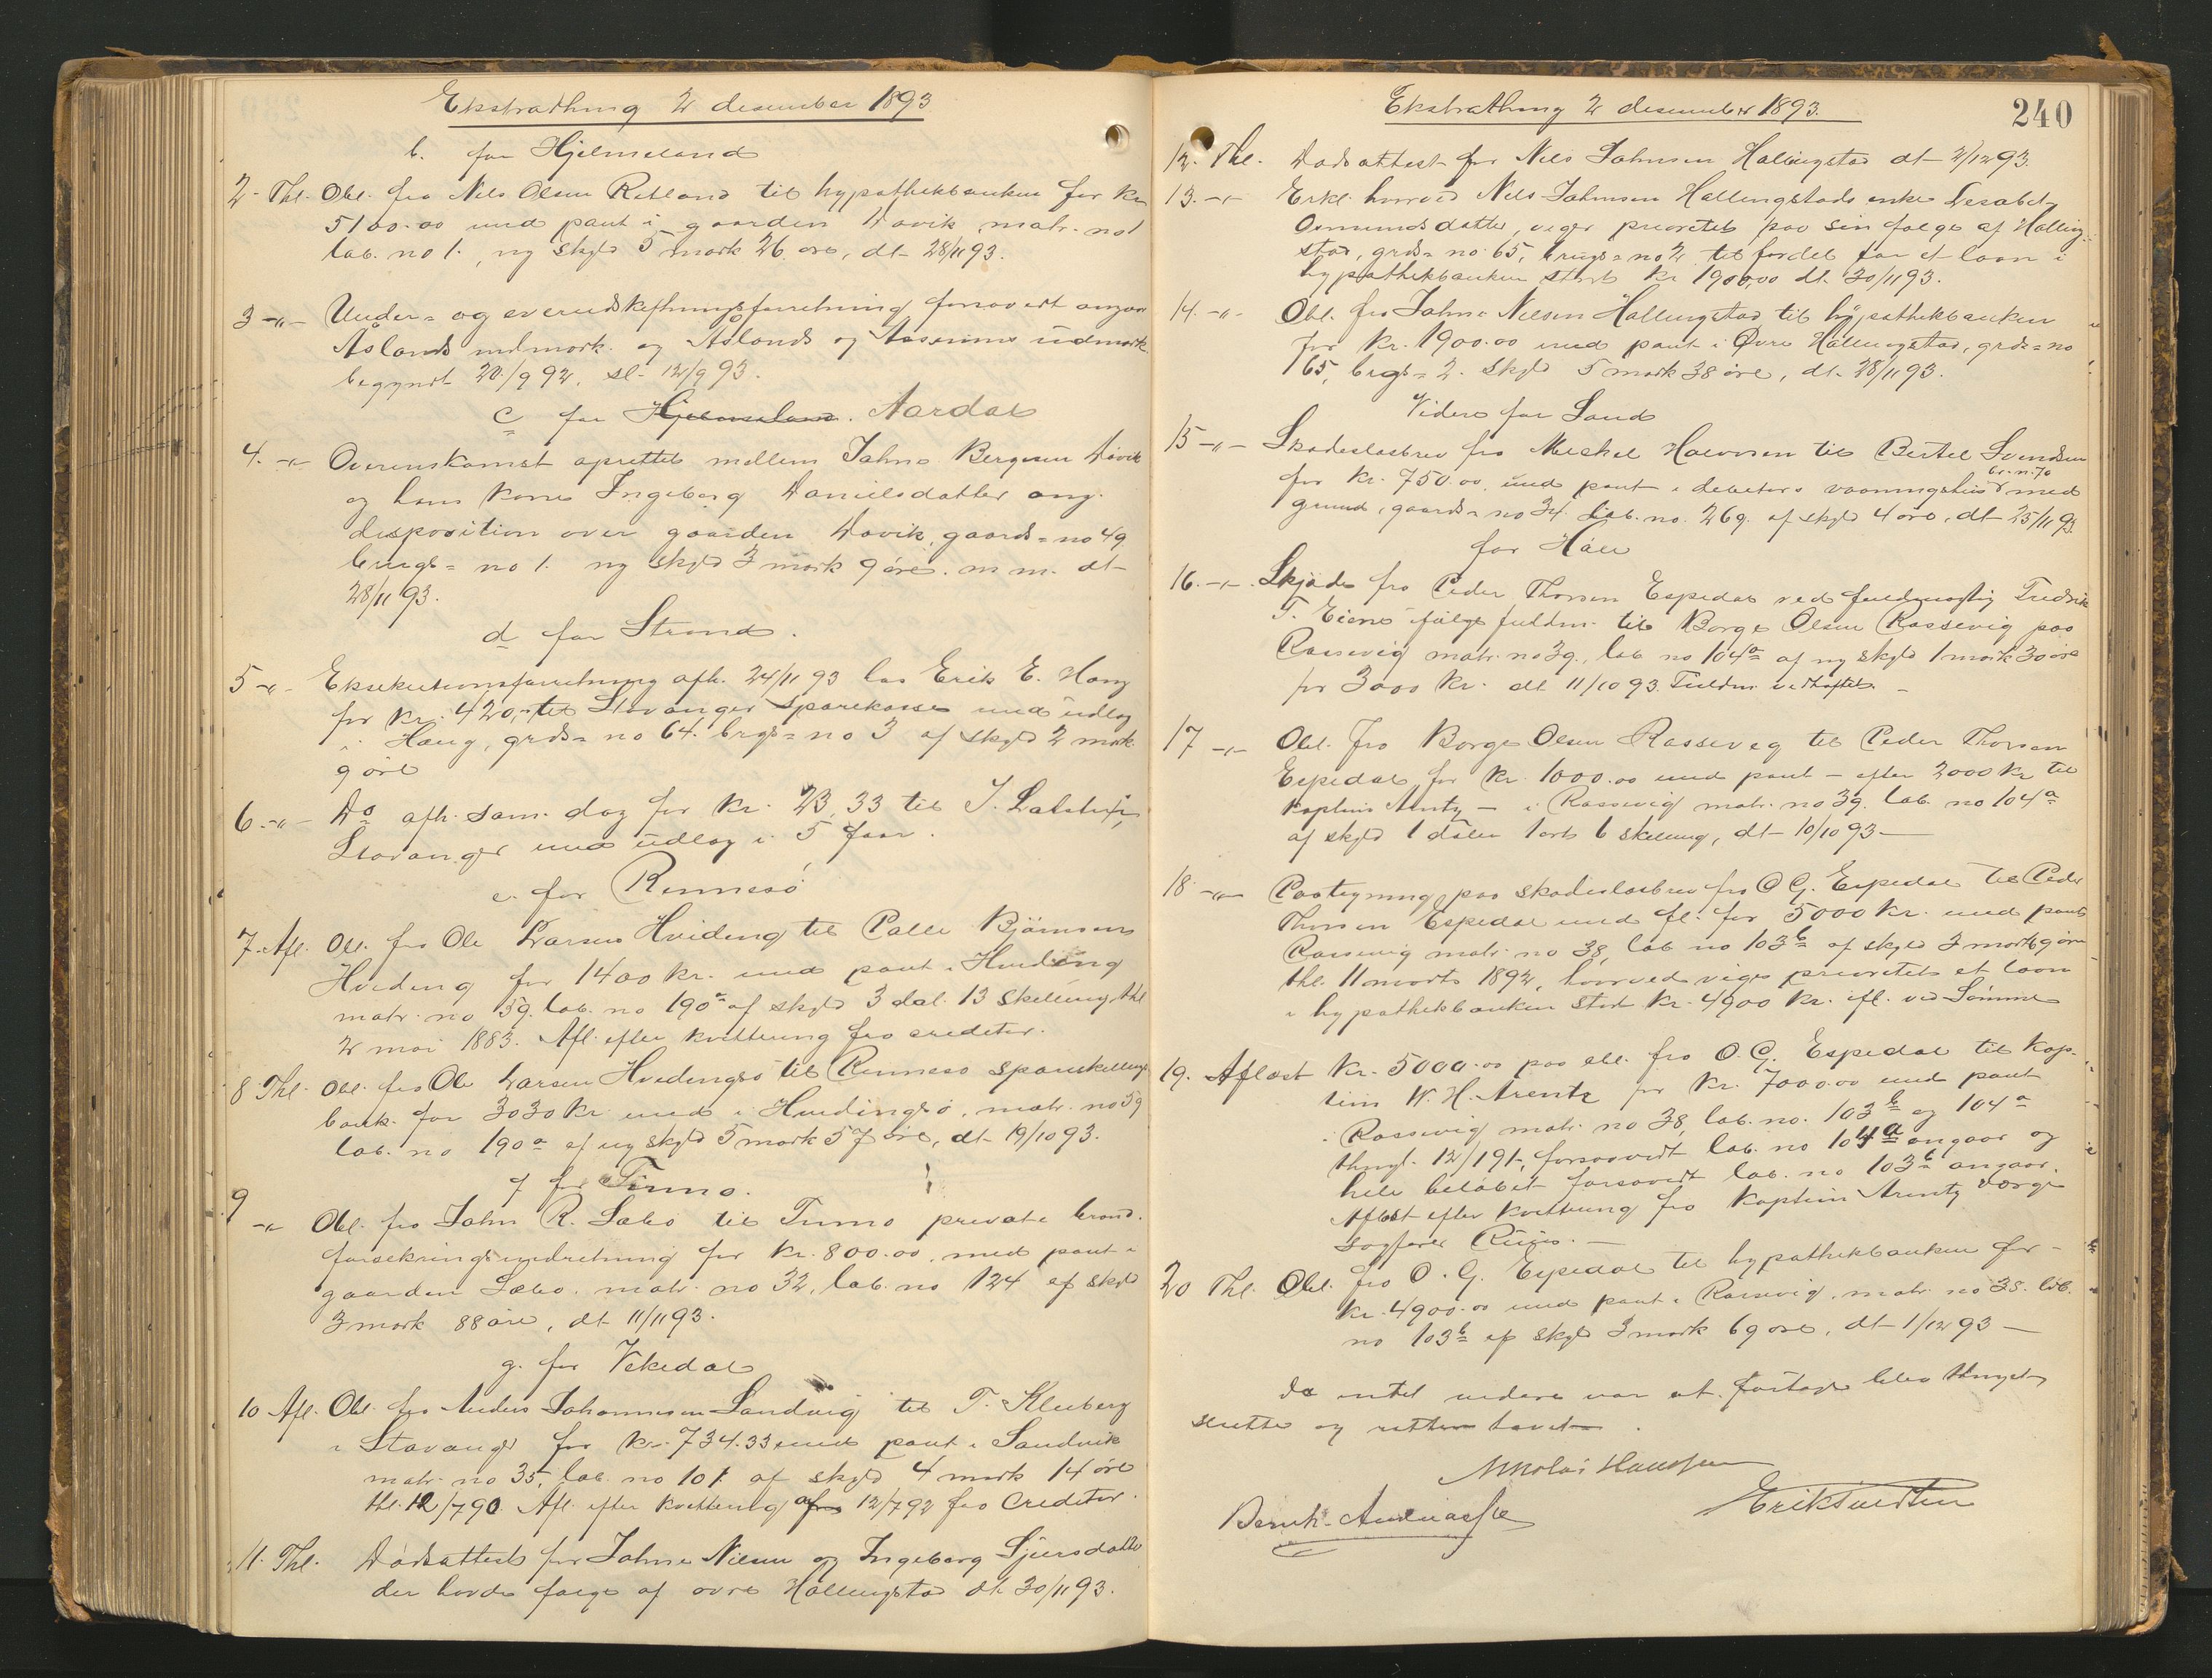 Ekstrathing 2 desember 1893
b. for Hjelmeland
2- Thl. Obl. fra Nils Olsen Ritland til hypothekbanken for kr
5100.00 med pant i gaarden Høvik matr. no 1
lab. no 1., ny skyld 5 mark 26 øre, dt 28/11 93.
3 -"- Under- og overudskiftningsforretning forsovidt angaar
Åslands indmark. og Åslands og Aasens udmark
begyndt 20/9 92, sl. 12/9 93.
c for Hjelmeland. Aardal
4. -"- Overenskomst oprettet mellem Johns Bergesen
og hans kone Ingeborg Danielsdatter ang.
disposition over gaarden gaards=no 49
brugs= no 1. ny skyld 3 mark 9 øre. m m. dt
28/11 93.
d for Strand.
5 -"- Eksekutionsforretning afh. 24/11 93 hos Erik E. Haug
for kr. 420,- til Stavanger Sparekasse med udlæg
i Haug, grds= no 64. brgs= no 3 af skyld 2 mark
9 øre
6.-"- Do afh. sam. dag for kr. 23,33 til J.
Stavanger med udlæg i 5 faar.
e. for Rennesø
7. Afl. Obl. fra Ole Larsen Hviding til Palle Bjørnsen
Hviding for 1400 kr. med pant i Hviding
matr. no 59. lab. no 190a af skyld 3 dal. 13 skilling thl
2 mai 1883. Afl. efter kvittering fra creditor.
8 Thl. Obl. fra Ole Larsen Hvidingsø til Rennesø spareskillings
bank. for 3030 kr med i Hvidingsø, matr. no 59
lab. no 190a af ny skyld 5 mark 57 øre, dt 19/10 93.
f for Finnø.
9 -"- Obl. fra John R. Sæbø til Finnø private brand.
forsikringsindretning for kr. 800.00, med pant i
gaarden Sæbø. matr. no 32, lab. no 124 af skyld
3 mark 88 øre, dt 11/11 93.
g. for Vikedal
10 Afl. Obl. fra Anders Johannesen Sandvig til T. Kleiberg
i Stavanger for kr. 734.33 med pant i Sandvik
matr. no 35, lab. no 101. af skyld 4 mark 14 øre
thl. 12/7 90 Afl. efter kvittering af 12/7 92 fra Creditor.
11. Thl. Dødsattest for Johne Nilsen og Ingeborg Sjursdatter
der havde følge af øvre Hallingstad dt 30/11 93.
Ekstrathing 2 desember 1893.
240
12. Thl. Dødsattest for Nils Johnsen Hallingstad dt 2/12 93.
13. -"- Erkl. hvorved Nils Johnsen Hallingstads enke Lisabet
Osmundsdatter, viger prioritet paa sin følge af Halling-
stad, grds= no 65, brugs= no 2 til fordel for et laan i
hypothekbanken stort kr 1900,00 dt. 30/11 93.
14. -"- Obl. fra Johne Nilsen Hallingstad til hypothekbanken
for kr. 1900.00 med pant i Øvre Hallingstad, grds=no
65, brgs= 2. Skyld 5 mark 38 øre, dt. 28/11 93.
Videre for Sand
15 -"- Skadesløsbrev fra Mickel Halvorsen til Bertel Svendsen
for kr. 750.00 med pant i debitors vaaningshus br.n.70 med
grund, gaards= no 34. lab. no. 269. af skyld 4 øre, dt 25/11 93
for Håle
16. -"- Skjøde fra Peder Thorsen Espedal ved fuldmægtig Fredrik
T. Eiene ifølge fuldm. til Børge Olsen Rossevig paa
Rossevig matr. no 39., lab no 104a af ny skyld 1 mark 30 øre
for 3000 kr. dt 11/10 93. Fuldm. vedhæftet. -
17 -"- Obl. fra Børge Olsen Rossevig til Peder Thorsen
Espedal for kr 1000.00 med pant - efter 2000 kr til
Kaptein Arentz - i Rossevig matr. no 39. lab. no 104a
af skyld 1 daler 1 ort 6 skilling, dt 10/10 93 -
18 -"- Paategning paa skadesløsbrev fra O G. Espedal til Peder
Thorsen Espedal med fl. for 5000 kr. med pant
Rossevig matr. no 38, lab no 103b af skyld 3 mark 69 øre
thl. 11 marts 1892, hvorved viges prioritet et laan
i hypothekbanken stort kr. 4900 kr. ifl. ved Sømme
19. Afløst kr. 5000.00 paa obl. fra O. G. Espedal til kap-
tein W. H. Arentz for kr. 7000.00 med pant
i Rossevig matr. no 38, lab. no. 103b og 104a
thngl. 12/1 91, forsaavidt lab. no 104a angaar og
hele beløbet forsavidt lab. no 103b angaar.
Afløst efter kvittering fra kaptein Arentz værge
sagfører
20 Thl. Obl. fra O. G. Espedal til hypothekbanken for -
kr. 4900.00 med pant i Rossevig, matr. no 38. lab.
no 103b af skyld 3 mark 69 øre, dt 1/12 93 -
da intet videre var at foretage blev thinget
sluttet og retten hævet.
Nikolai Hanssen
Bernh. Andreassen
Erik Tuedten